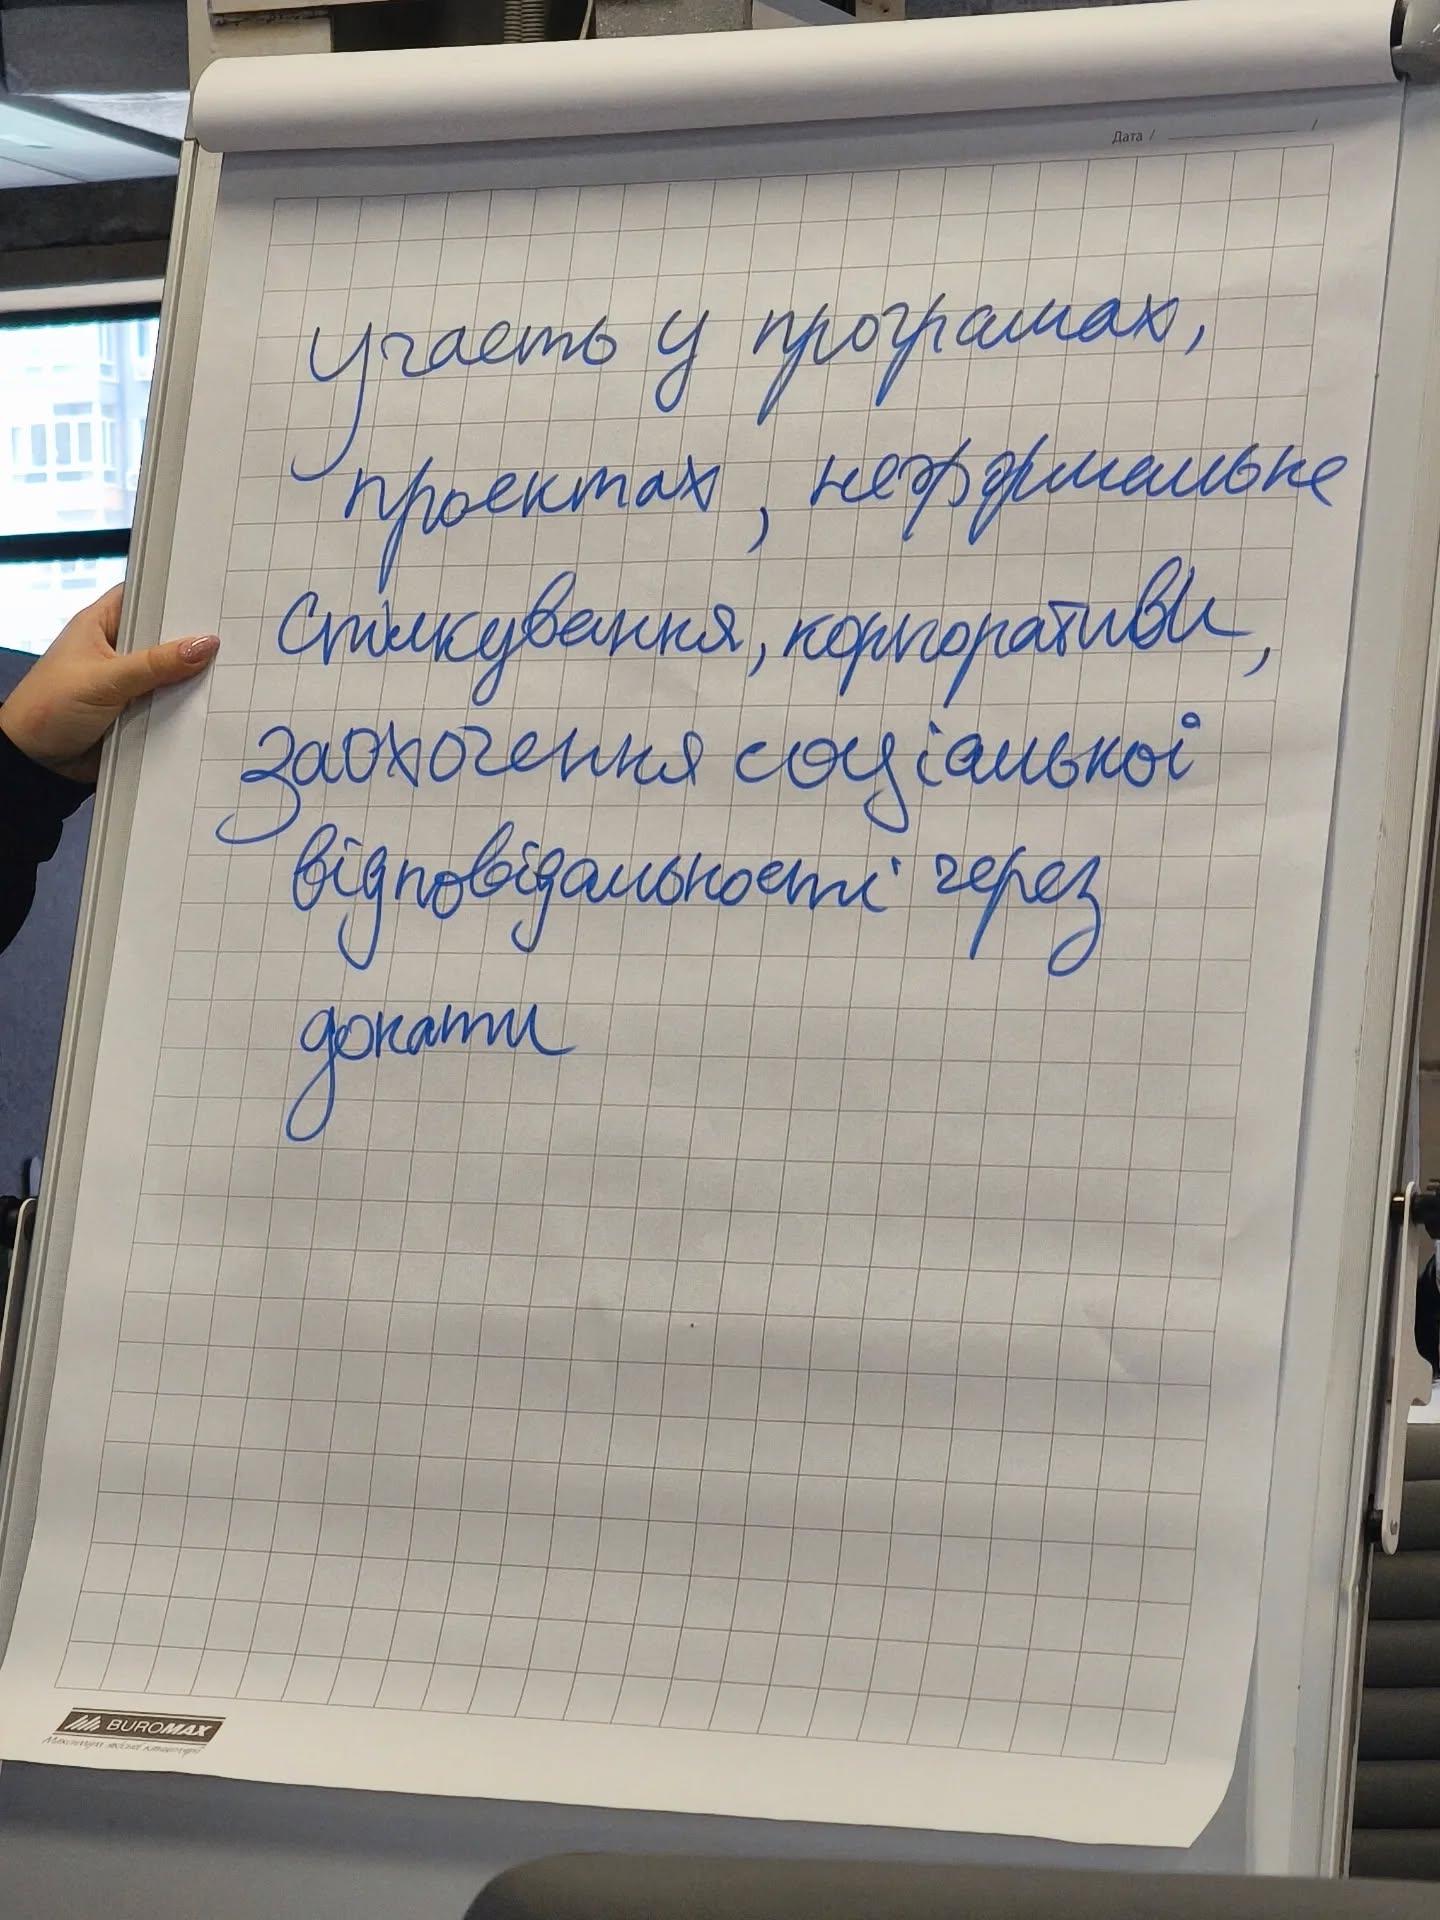 Дата /
участь у програмах,
проектах, неформальне
Спілкування, корпоративи,
заохочення соціальної
відповідальності через
донати
BUROMAX